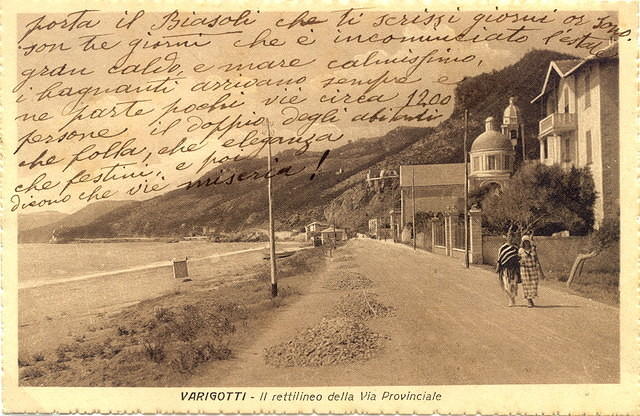 porta il Biasoli che ti scrissi giorni or sono,
son tre giorni che è incominciato l'estate
gran caldo, e mare calmissimo,
i bagnanti arrivano sempre e
ne parte pochi vi è circa 1200
persone, il doppio degli abitanti
che folla, che eleganza
che festini, e poi
dicono che vi è miseria!
VARIGOTTI - Il rettilineo della Via Provinciale